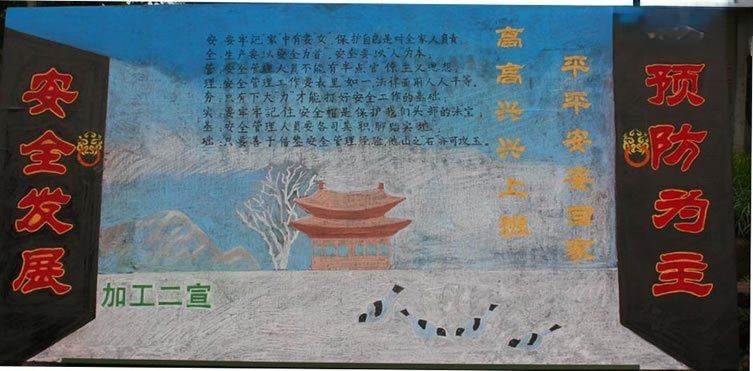 安全发展
安:要牢记家中有妻女,保护自己是对全家人负责
全:生产要以安全为首,安全要以人为本.
管:安全管理人员不能有半点官僚主义思想.
理:安全管理工作要表里如一,法律面前人人平等.
务:只有下大力才能打好安全工作的基础.
实:要牢牢记住安全帽是保护我们头部的法宝.
基:安全管理人员要各司其职,脚踏实地.
础:只要善于借鉴安全管理经验,他山之石亦可攻玉.
高高兴兴上班
平平安安回家
预防为主
加工二宣